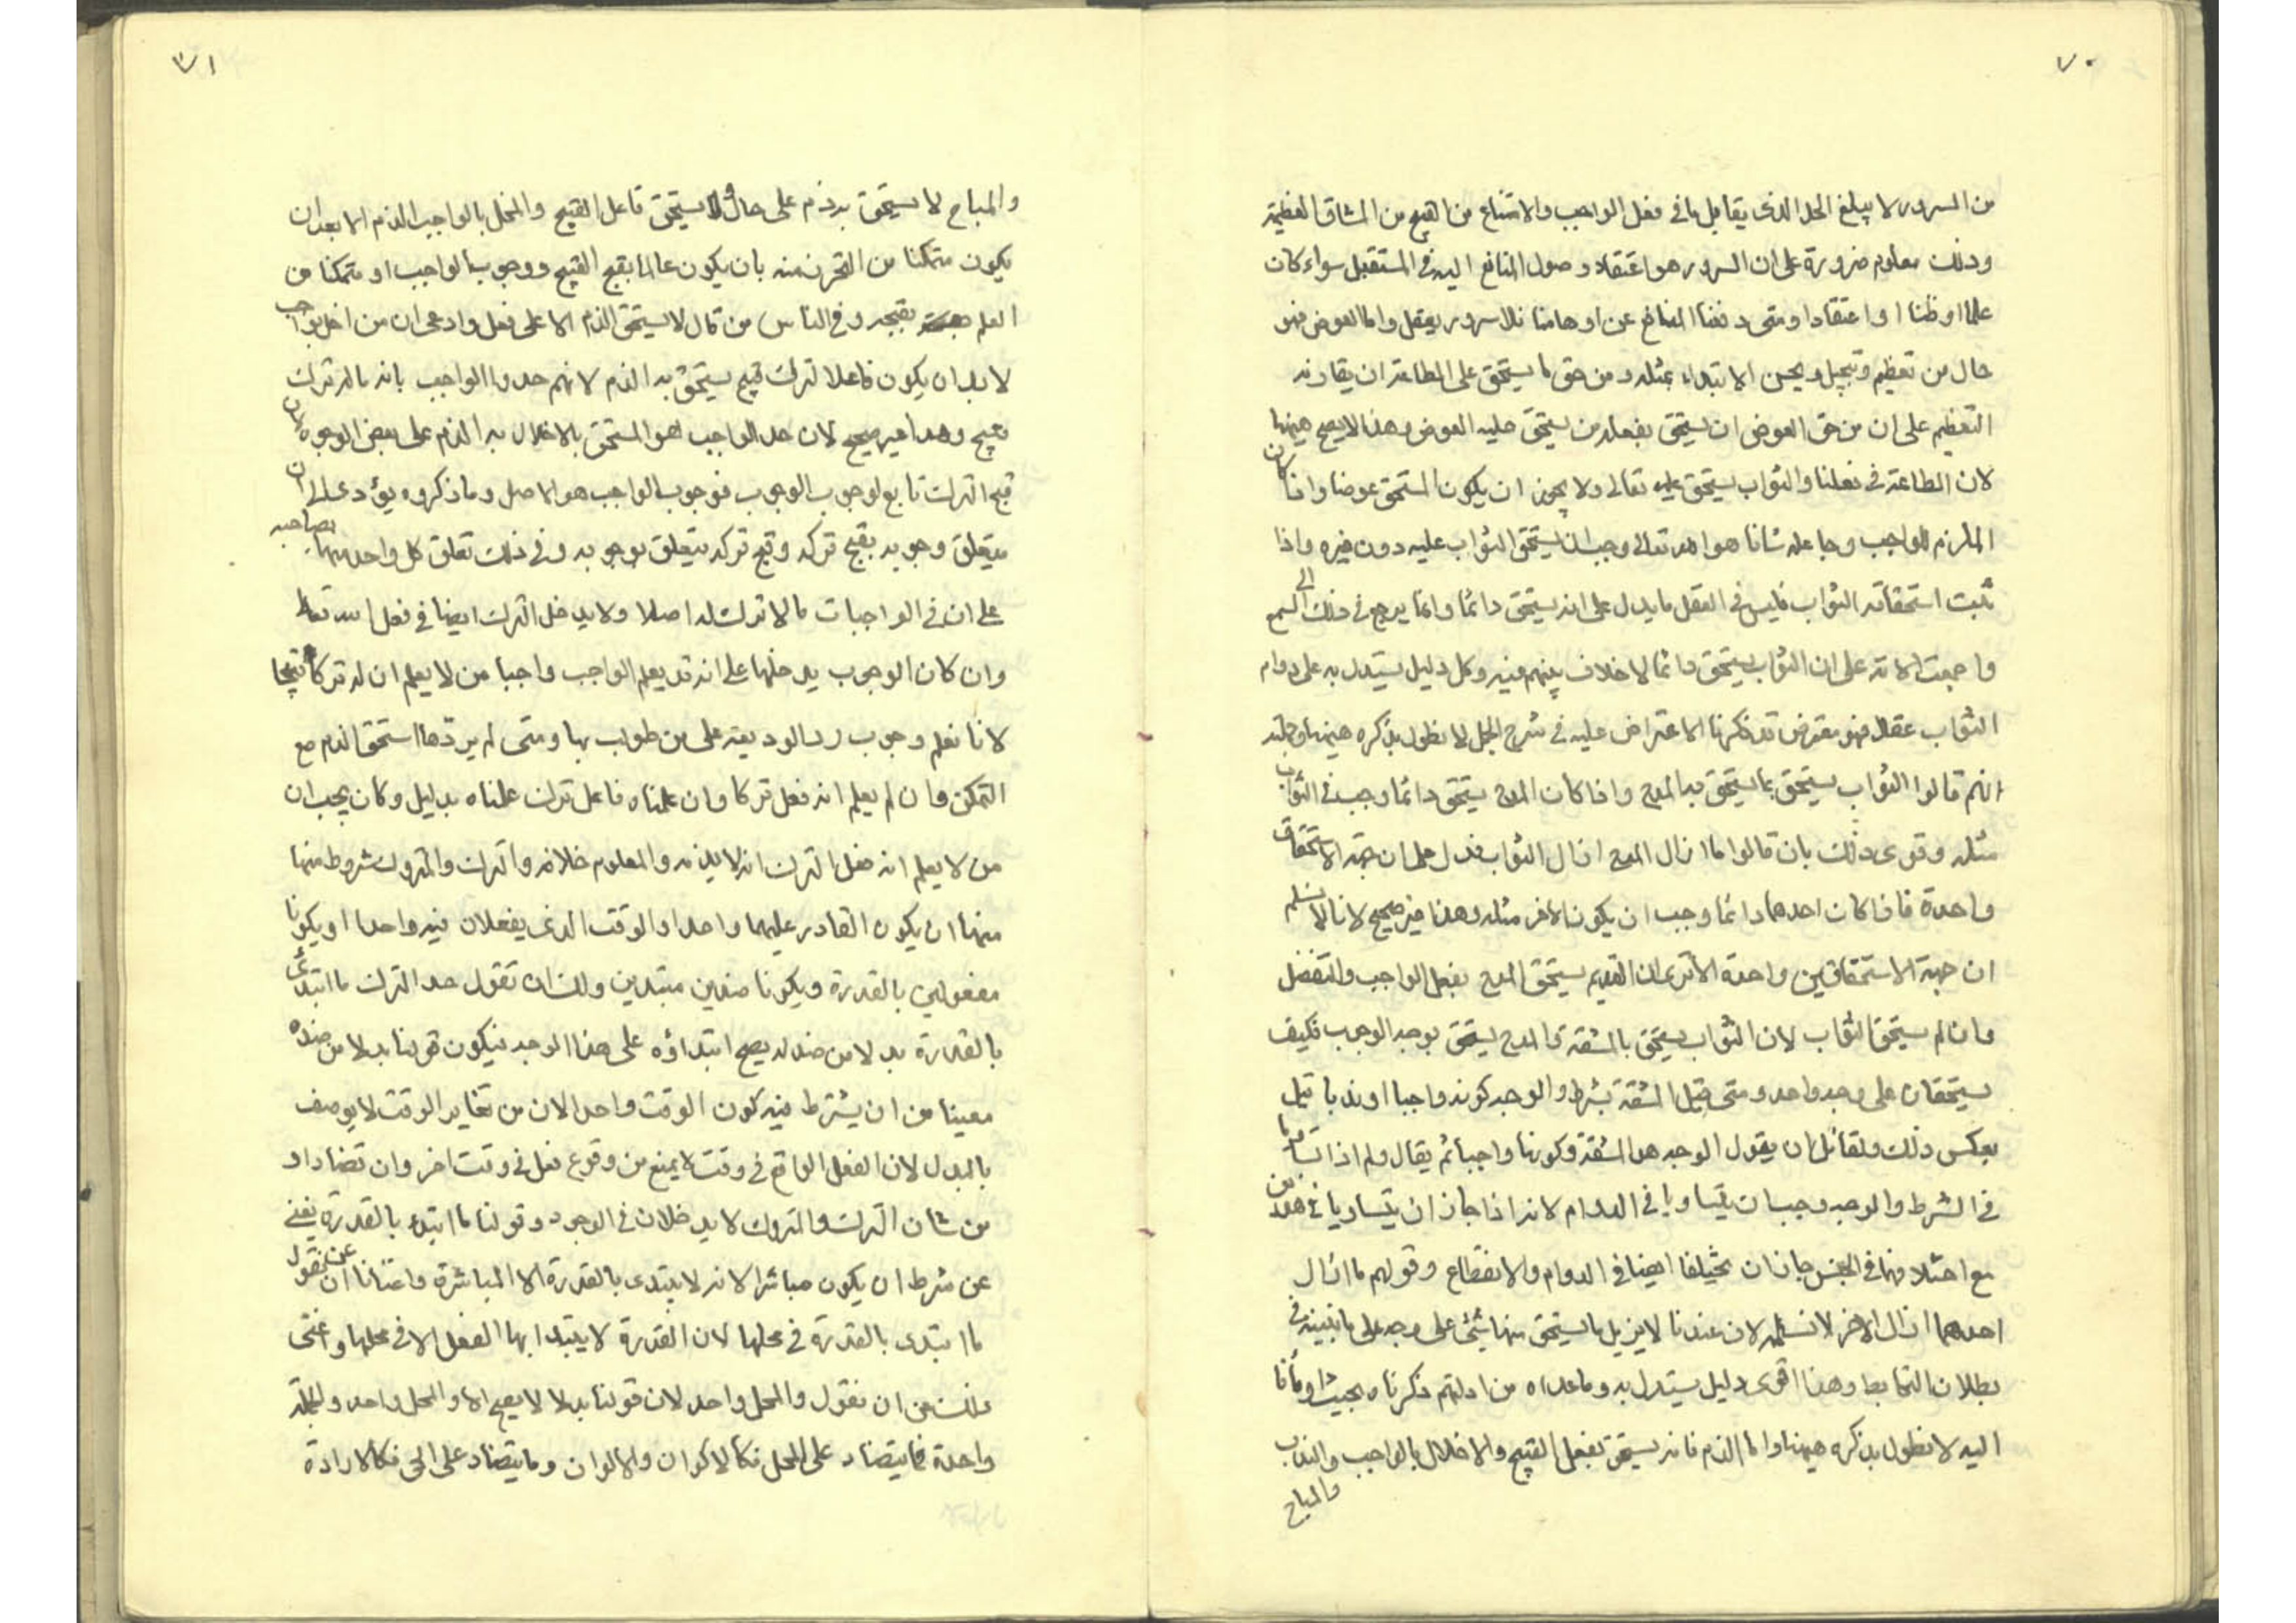 ٧٠
من السرور لا يبلغ الحد الذى يقابل ما فى فعل الواجب والامتناع من القبيح من المشاق العظيمة
وذلك معلوم ضرورة على ان السرور هو اعتقاد وصول المنافع اليه فى المستقبل سواء كان
علما او ظنا او اعتقادا ومتى دفعنا المنافع عن اوهامنا فلا سرور يعقل واما العوض فهو
خال من تعظيم وتبجيل ويحسن الابتداء بمثله ومن حق ما يستحق على الطاعة ان يقارنه
التعظيم على ان من حق العوض ان يستحق بفعله من يستحق عليه العوض وهذا لا يصح هيهنا
لان الطاعة فى فعلنا والثواب يستحق عليه تعالى ولا يجوز ان يكون المستحق عوضا واذا كان
الملزم للواجب وجاعله شاقا هو الله تعالى وجب ان يستحق الثواب عليه دون غيره واذا
ثبت استحقاقه الثواب فليس فى العقل ما يدل على انه يستحق دائما وانما يرجع فى ذلك الى السمع
واجمعت الامة على ان الثواب يستحق دائما لا خلاف بينهم فيه وكل دليل يستدل به على دوام
الثواب عقلا فهو معترض قد ذكرنا الاعتراض عليه فى شرح الجمل لا نطول بذكره هيهنا وجملته
انهم قالوا الثواب يستحق بما يستحق به المدح واذا كان المدح يستحق دائما وجب فى الثواب
مثله وقوى ذلك بان قالوا ما ازال المدح ازال الثواب فدل على ان جهة الاستحقاق
واحدة فاذا كان احدهما دائما وجب ان يكون الاخر مثله وهذا غير صحيح لانا لا نسلم
ان جهة الاستحقاقين واحدة الا ترى ان القديم يستحق المدح بفعل الواجب والتفضل
وان لم يستحق الثواب لان الثواب يستحق بالمشقة والمدح يستحق بوجه الوجوب فكيف
يستحقان على وجه واحد ومتى قيل المشقة شرط والوجه كونه واجبا او ندبا قيل
بعكس ذلك ولقائل ان يقول الوجه هو المشقة وكونها واجبا ثم يقال ولم اذا تساويا
فى الشرط والوجه وجب ان يتساويا فى الدوام لانه اذا جاز ان يتساويا فى هذين
مع اختلافهما فى الجنس جاز ان يختلفا ايضا فى الدوام والانقطاع وقولهم ما ازال
احدهما ازال الاخر لا نسلمه لان عندنا لا يزيل ما يستحق منها شئ على وجه على ما نبينه فى
بطلان التحابط وهذا اقوى دليل يستدل به وما عداه من ادلتهم ذكرناه بحيث اومأنا
اليه لا نطول بذكره هيهنا واما الذم فانه يستحق بفعل القبيح والاخلال بالواجب والندب
والمباح
٧١
والمباح لا يستحق به ذم على حال ولا يستحق فاعل القبيح والمخل بالواجب الذم الا بعد ان
يكون متمكنا من التحرز منه بان يكون عالما بقبح القبيح ووجوب الواجب او متمكنا من
العلم بقبحه وفى الناس من قال لا يستحق الذم الا على فعل وادعى ان من اخل بواجب
لابد ان يكون فاعلا لترك قبيح يستحق به الذم لانهم حدوا الواجب بانه ماله ترك
قبيح وهذا غير صحيح لان حد الواجب هو المستحق بالاخلال به الذم على بعض الوجوه لان
قبح الترك تابع لوجوب الوجوب فوجوب الواجب هو الاصل وما ذكروه يؤدى الى ان
يتعلق وجوبه بقبح تركه وقبح تركه يتعلق بوجوبه وفى ذلك تعلق كل واحد منهما بصاحبه
على ان فى الواجبات ما لا ترك له اصلا ولا يدخل الترك ايضا فى فعل الله تعالى
وان كان الوجوب يدخلها على انه قد يعلم الواجب واجبا من لا يعلم ان له تركا قبيحا
لانا نعلم وجوب رد الوديعة على من طولب بها ومتى لم يردها استحق الذم مع
التمكن وان لم يعلم انه فعل تركا وان علمناه فاعل ترك علمناه بدليل وكان يجب ان
من لا يعلم انه فعل الترك انه لا يذمه والمعلوم خلافه والترك والمتروك شروط منها
منها ان يكون القادر عليهما واحدا والوقت الذى يفعلان فيه واحدا او يكونا
مفعولين بالقدرة ويكونا ضدين مبتدين ولك ان تقول حد الترك ما ابتدئ
بالقدرة بدلا من ضد له يصح ابتداؤه على هذا الوجه فيكون قولنا بدلا من ضده
مغنيا من ان يشترط فيه كون الوقت واحدا لان من تغاير الوقت لا يوصف
بالبدل لان الفعل الواقع فى وقت لا يمنع من وقوع فعل فى وقت اخر وان تضادا و
من شان الترك والمتروك لا يدخلان فى الوجود وقولنا ما ابتدئ بالقدرة يغنى
عن شرط ان يكون مباشرا لانه لا يبتدى بالقدرة الا المباشرة واغنانا عن ان نقول
ما ابتدى بالقدرة فى محلها لان القدرة لا يبتدا بها الفعل الا فى محلها واغنى
ذلك عن ان نقول والمحل واحد لان قولنا بدلا لا يصح الا والمحل واحد والجملة
واحدة فما يتضاد على المحل فكالاكوان والالوان وما يتضاد على الحى فكالارادة